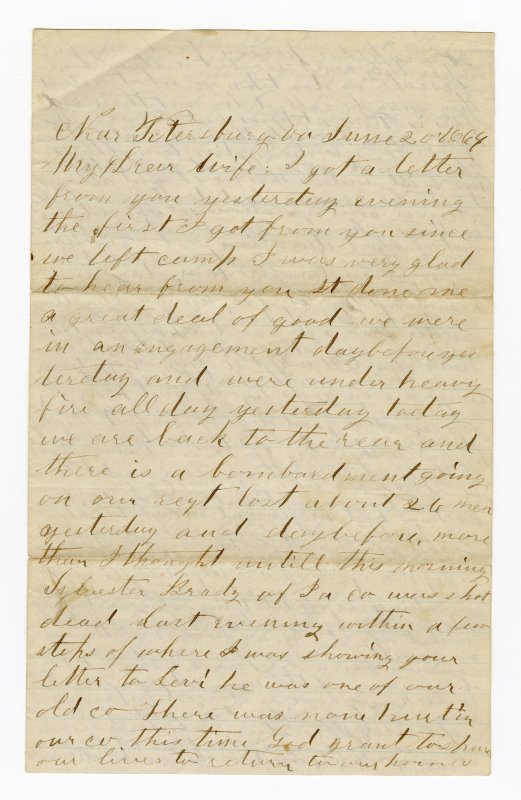 Near Petersburg va June 20 1864
My Dear wife: I got a letter
from you yesterday evening
the first I got from you since
we left camp I was very glad
to hear from you It done me
a great deal of good we were
in an engagement daybefore yes
terday and were under heavy
fire all day yesterday today
we are back to the rear and
there is a bombardment going
on our regt lost about 26 men
yesterday and daybefore, more
than I thought untill this morning
Sylvester Brady of I a co was shot
dead last evening within a few
steps of where I was showing your
letter to Levi he was one of our
old co there was none hurt in
our co this time God grant to
our lives to return to our homes